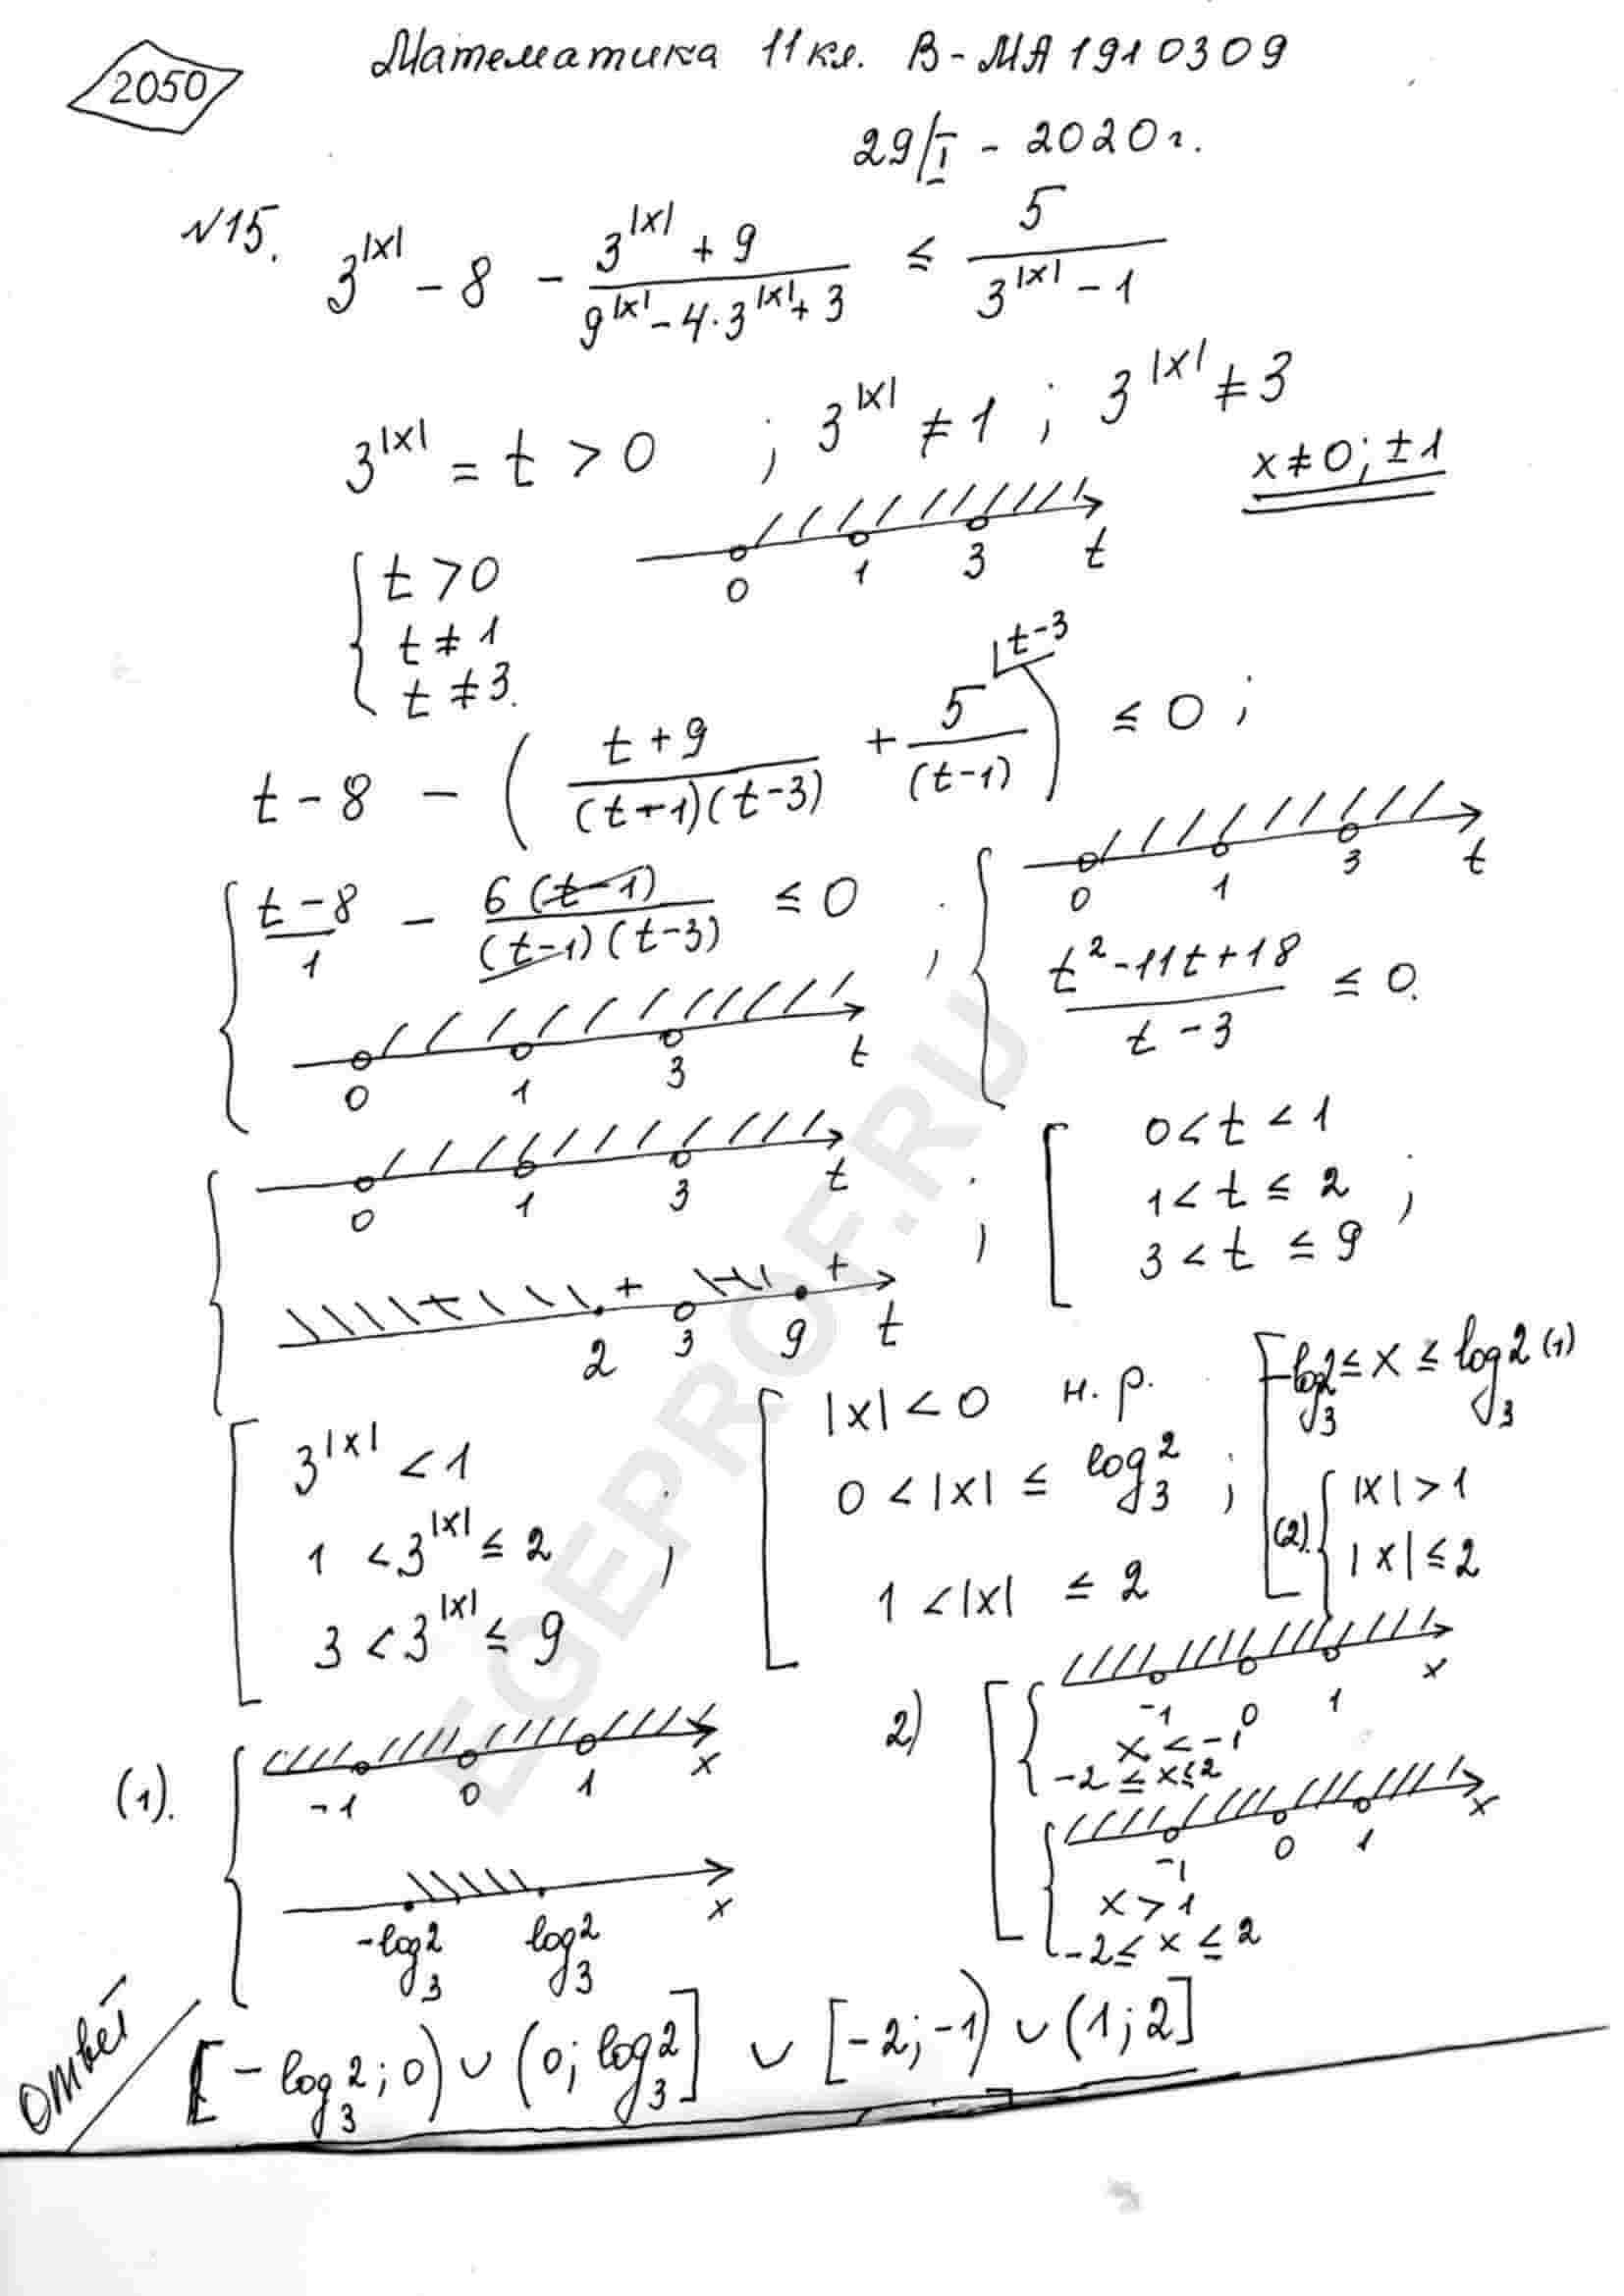 2050
Математика 11 кл. В-МА1910309
29/I - 2020 г.
№15. 3^|x| - 8 - (3^|x| + 9)/(9^|x| - 4·3^|x| + 3) ≤ 5/(3^|x| - 1)
3^|x| = t > 0 ; 3^|x| ≠ 1 ; 3^|x| ≠ 3
x ≠ 0; ±1
{ t > 0
t ≠ 1
t ≠ 3.
0 1 3 t
t - 8 - ( (t + 9)/((t-1)(t-3)) + 5/(t-1) ) ≤ 0 ;
t-3
{ (t - 8)/1 - 6(t-1)/((t-1)(t-3)) ≤ 0
0 1 3 t
; { 0 1 3 t
(t² - 11t + 18)/(t - 3) ≤ 0.
{ 0 1 3 t
- + - +
2 3 9 t
; [ 0 < t < 1
1 < t ≤ 2 ;
3 < t ≤ 9
[ 3^|x| < 1
1 < 3^|x| ≤ 2 ;
3 < 3^|x| ≤ 9
[ |x| < 0 н.р.
0 < |x| ≤ log₃2 ;
1 < |x| ≤ 2
[ -log₃2 ≤ x ≤ log₃2 (1)
(2). { |x| > 1
|x| ≤ 2
(1). { -1 0 1 x
-log₃2 log₃2 x
2) [ { -1 0 1 x
x < -1
-2 ≤ x ≤ 2
{ -1 0 1 x
x > 1
-2 ≤ x ≤ 2
Ответ [-log₃2; 0) ∪ (0; log₃2] ∪ [-2; -1) ∪ (1; 2]
EGEPROF.RU